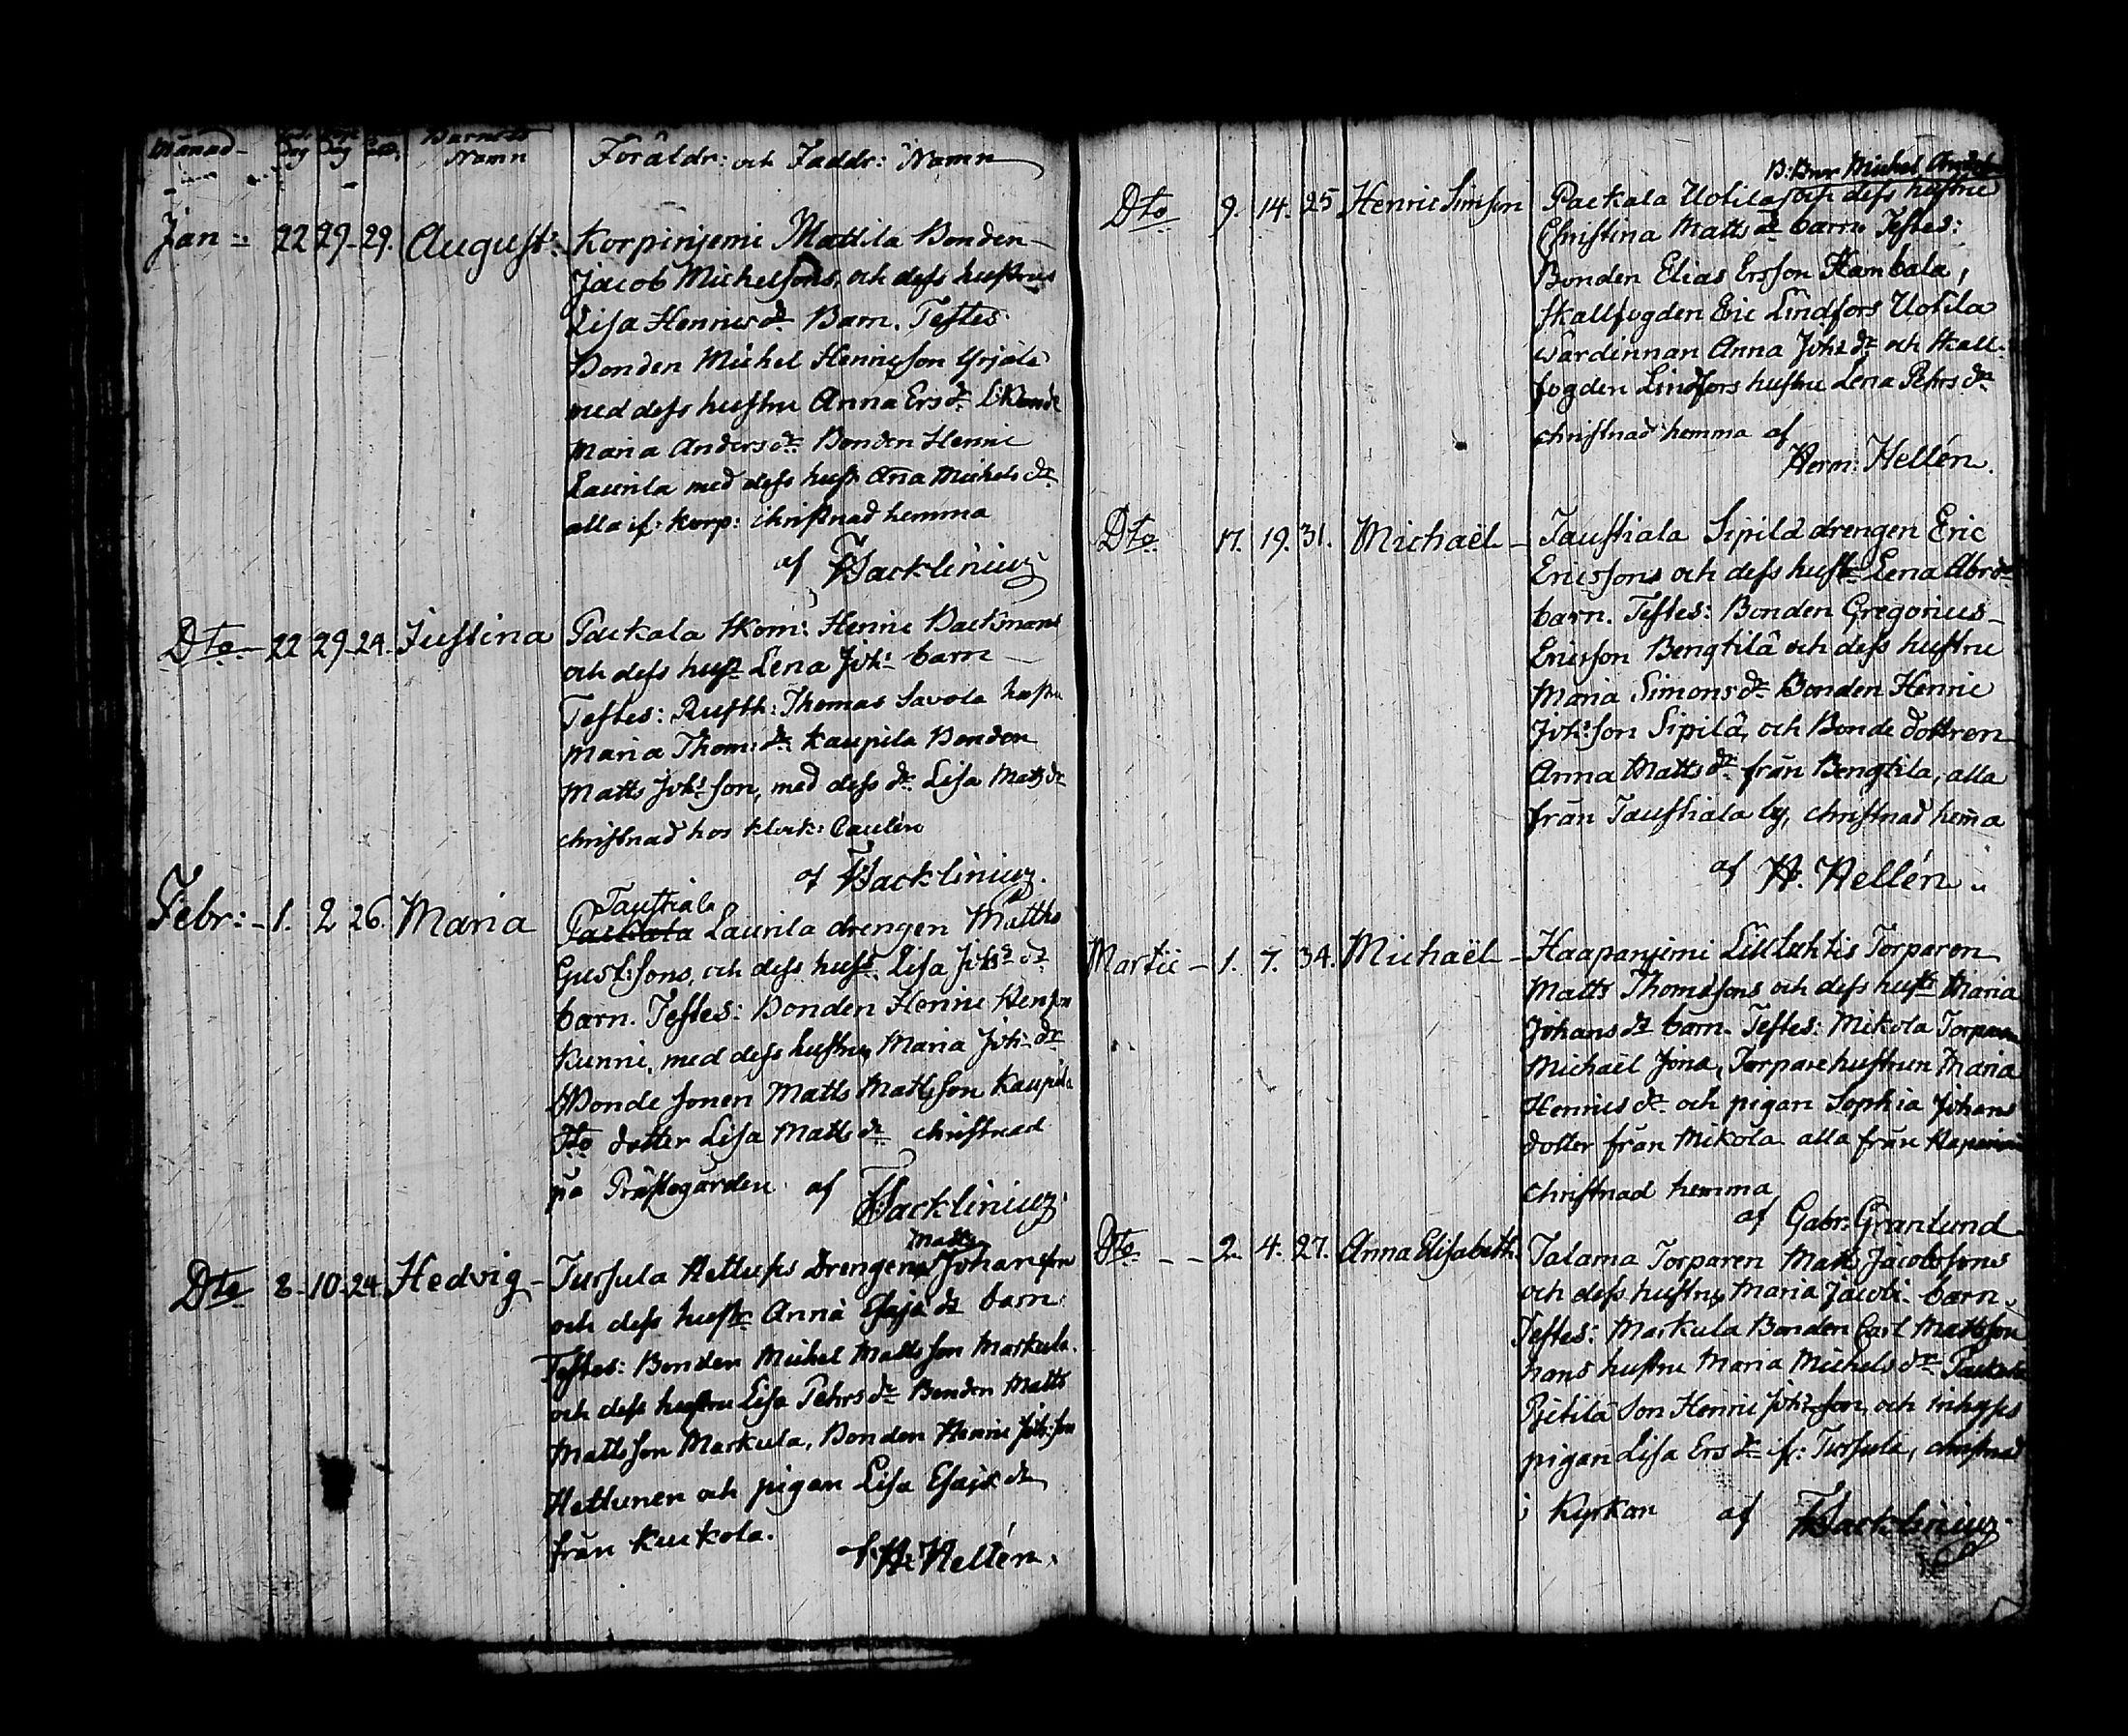 Månad Dag Dag Barnets Namn Föräldr: och Faddr: Namn
Jan: 22 29. 29. August: Korpinjemi Mattila Bonden
Jacob Michelsons, och dess hustrus
Lisa Henricsdr Barn. Testes
Bonden Michel Henricson Yrjälä
med dess hustru Anna Ersdr
Maria Andersdr Bonden Henric
Laurila med dess hust Aña Michelsdr
alla if: Korp: christnad hemma
af Backlinius
Dto 22 29. 24. Justina Packala Henric Backmans
och dess hustr Lena Johs barn
Testes: Rusth: Thomas Savola hustru
Maria Thom:dr Kaupila Bonden
Matts Johsson, med dess dr Lisa Mattsdr
christnad hos klock:
af Backlinius.
Taustiala
Febr: 1. 2 26. Maria Laurila drengen Matths
Gust:sons, och dess hust. Lisa Johsdr
barn. Testes: Bonden Henric Henson
Kunni, med dess hustru Maria Johdr
Bonde sonen Matts Mattsson Kaupila
Dto dotter Lisa Mattsdr christnad
på Prästegården af Backlinius.
Matts
Dto 8. 10. 24. Hedvig Tursula drengen Johanson
och dess hustr Anna Esajedr barn
Testes: Bonden Michel Mattsson Markula.
och dess hustru Lisa Pehrsdr Bonden Matts
Mattsson Markula, Bonden Henric Joh:son
Hettunen och pigan Lisa Esajedr
från Kuckola.
af H. Hellén.
B:Bror Michel
Dto 9. 14. 25 Henric Simson Packala Uotila och dess hustru
Christina Mattsdr barn Testes:
Bonden Elias Ersson Kambala,
Skallfogden Eric Lindfors Uotila
wärdinnan Anna Johsdr och Skall-
fogden Lindfors hustru Lena Pehrsdr
christnad hemma af
Herm: Hellén.
Dto 17. 19. 31. Michaël Taustiala Sipilä drengen Eric
Ericssons och dess hustr Lena Abrdr
barn. Testes: Bonden Gregorius
Ericsson Bengtilä och dess hustru
Maria Simonsdr Bonden Henric
Joh:son Sipilä, och Bonde dottren
Anna Mattsdr från Bengtila, alla
från Taustiala by, christnad hem̃a
af H. Hellén
Martii 1. 7. 34. Michaël Haapanjemi Torparen
Matts Thomæsons och dess hustr Maria
Johansdr barn. Testes: Mikola Torparen
Michaël Jöns, Torparehustrun Maria
Henricsdr och pigan Sophia Johans
dotter från Mikola alla från
christnad hemma
af Gabr: Granlund
Dto 2. 4. 27. Anna Elisabeth Talama Torparen Matts Jacobssons
och dess hustru Maria Jacobs barn
Testes: Markula Bonden Carl Mattsson
hans hustru Maria Michelsdr Packala
Pjetilä Son Henric Johsson, och inhyses
pigan Lisa Ersdr if: Tursula, christnad
i Kyrkan af Backlinius